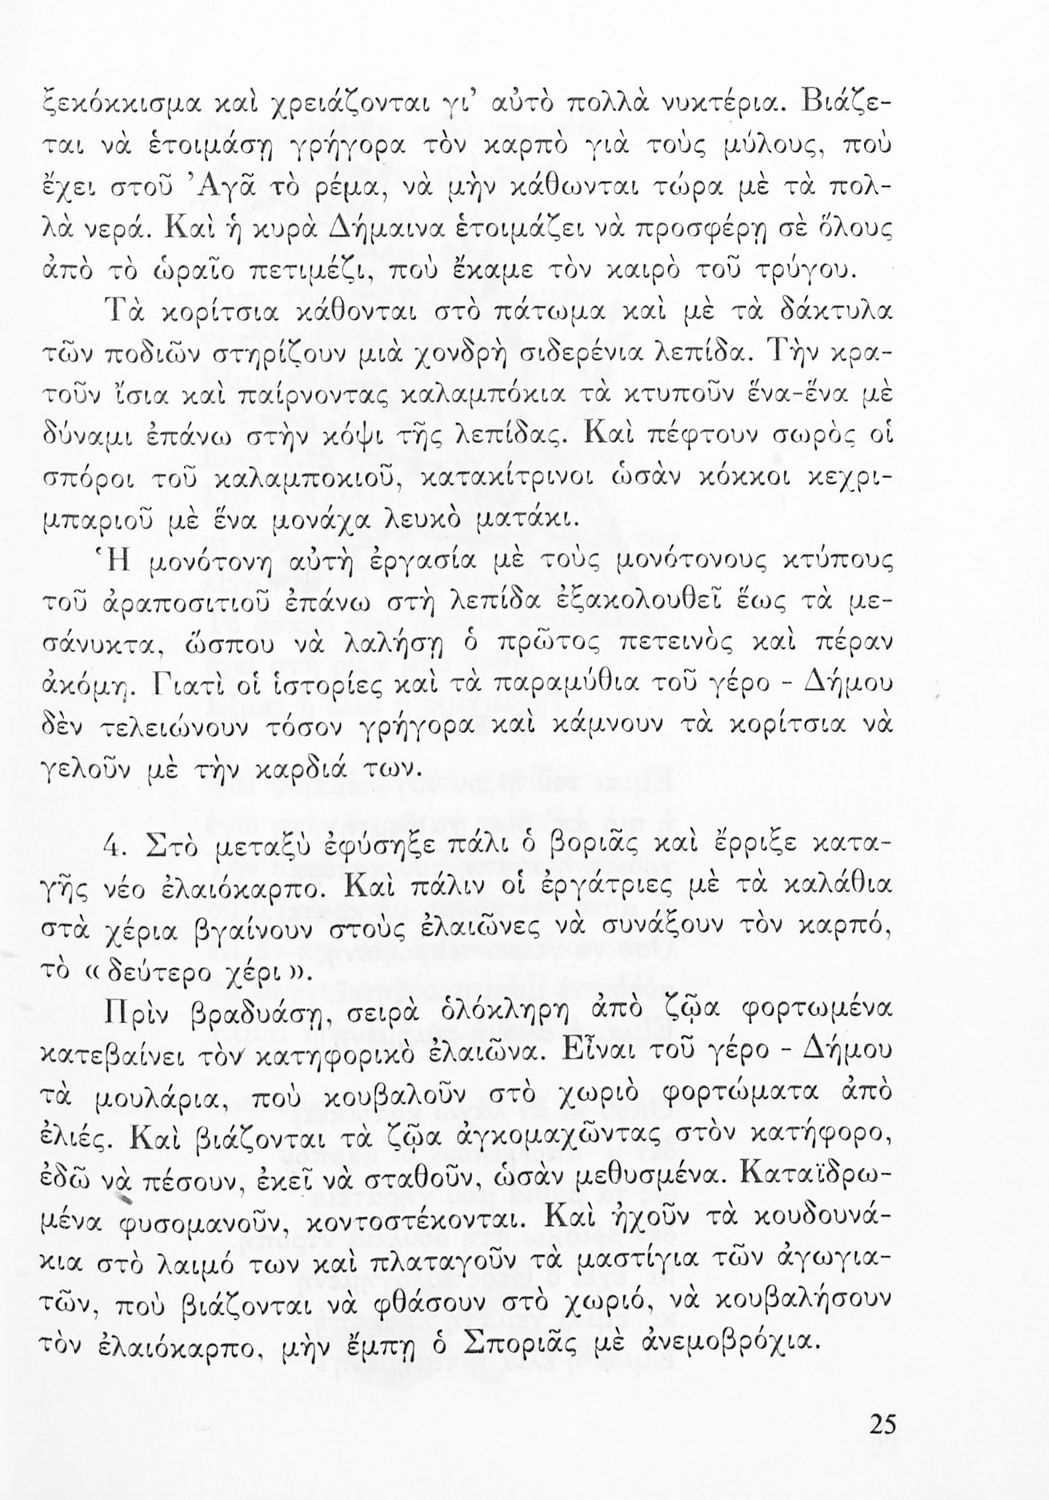 ξεκόκκισμα καὶ χρειάζονται γι’ αὐτὸ πολλὰ νυκτέρια. Βιάζε-
ται νὰ ἑτοιμάσῃ γρήγορα τὸν καρπὸ γιὰ τοὺς μύλους, ποὺ
ἔχει στοῦ Ἀγᾶ τὸ ρέμα, νὰ μὴν κάθωνται τώρα μὲ τὰ πολ-
λὰ νερά. Καὶ ἡ κυρὰ Δήμαινα ἑτοιμάζει νὰ προσφέρῃ σὲ ὅλους
ἀπὸ τὸ ὡραῖο πετιμέζι, ποὺ ἔκαμε τὸν καιρὸ τοῦ τρύγου.
Τὰ κορίτσια κάθονται στὸ πάτωμα καὶ μὲ τὰ δάκτυλα
τῶν ποδιῶν στηρίζουν μιὰ χονδρὴ σιδερένια λεπίδα. Τὴν κρα-
τοῦν ἴσια καὶ παίρνοντας καλαμπόκια τὰ κτυποῦν ἕνα-ἕνα μὲ
δύναμι ἐπάνω στὴν κόψι τῆς λεπίδας. Καὶ πέφτουν σωρὸς οἱ
σπόροι τοῦ καλαμποκιοῦ, κατακίτρινοι ὡσὰν κόκκοι κεχρι-
μπαριοῦ μὲ ἕνα μονάχα λευκὸ ματάκι.
Ἡ μονότονη αὐτὴ ἐργασία μὲ τοὺς μονότονους κτύπους
τοῦ ἀραποσιτιοῦ ἐπάνω στὴ λεπίδα ἐξακολουθεῖ ἕως τὰ με-
σάνυκτα, ὥσπου νὰ λαλήσῃ ὁ πρῶτος πετεινὸς καὶ πέραν
ἀκόμη. Γιατὶ οἱ ἱστορίες καὶ τὰ παραμύθια τοῦ γέρο - Δήμου
δὲν τελειώνουν τόσον γρήγορα καὶ κάμνουν τὰ κορίτσια νὰ
γελοῦν μὲ τὴν καρδιά των.
4. Στὸ μεταξὺ ἐφύσηξε πάλι ὁ βοριᾶς καὶ ἔρριξε κατα-
γῆς νέο ἐλαιόκαρπο. Καὶ πάλιν οἱ ἐργάτριες μὲ τὰ καλάθια
στὰ χέρια βγαίνουν στοὺς ἐλαιῶνες νὰ συνάξουν τὸν καρπό,
τὸ « δεύτερο χέρι ».
Πρὶν βραδυάσῃ, σειρὰ ὁλόκληρη ἀπὸ ζῷα φορτωμένα
κατεβαίνει τὸν κατηφορικὸ ἐλαιῶνα. Εἶναι τοῦ γέρο - Δήμου
τὰ μουλάρια, ποὺ κουβαλοῦν στὸ χωριὸ φορτώματα ἀπὸ
ἐλιές. Καὶ βιάζονται τὰ ζῷα ἀγκομαχῶντας στὸν κατήφορο,
ἐδῶ νὰ πέσουν, ἐκεῖ νὰ σταθοῦν, ὡσὰν μεθυσμένα. Καταϊδρω-
μένα φυσομανοῦν, κοντοστέκονται. Καὶ ἠχοῦν τὰ κουδουνά-
κια στὸ λαιμό των καὶ πλαταγοῦν τὰ μαστίγια τῶν ἀγωγια-
τῶν, ποὺ βιάζονται νὰ φθάσουν στὸ χωριό, νὰ κουβαλήσουν
τὸν ἐλαιόκαρπο, μὴν ἔμπῃ ὁ Σποριᾶς μὲ ἀνεμοβρόχια.
25